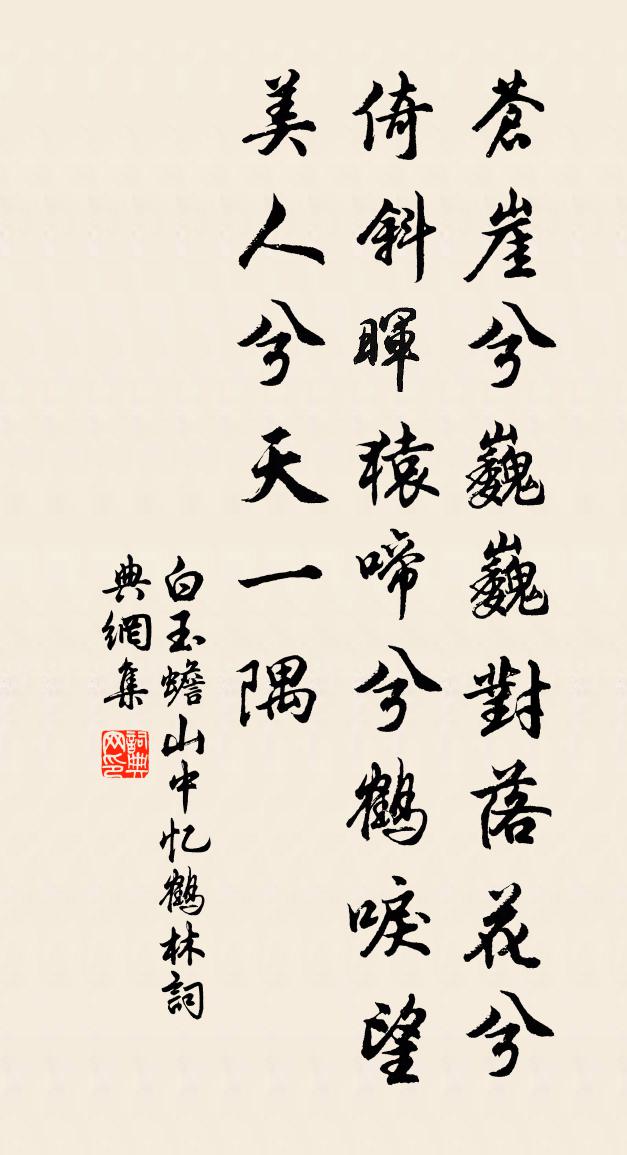 蒼崖兮巍巍對落花兮
倚斜暉猿啼兮鶴唳望
美人兮天一隅
白玉蟾山中忆鶴林詞
典網集
詞典
网印